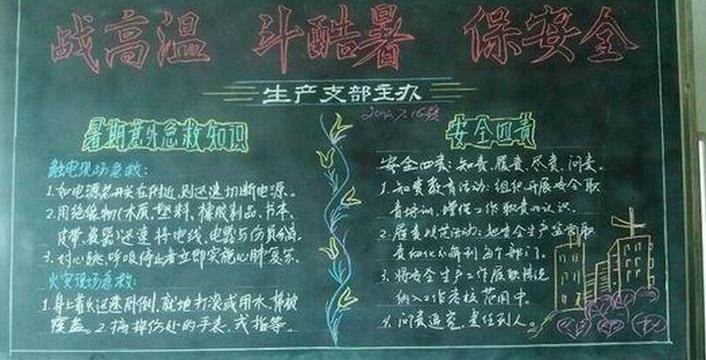 战高温 斗酷暑 保安全
生产支部主办
暑期意外急救知识
触电现场急救:
1.如电源开关在附近,则迅速切断电源。
2.用绝缘物(木质、塑料、橡胶制品、书本、
皮带、瓷器)迅速将电线、电器与伤员分离。
3.对心跳、呼吸停止者立即实施心肺复苏。
火灾现场急救:
1.身上着火迅速卧倒,就地打滚或用水、棉被
覆盖。2.摘掉伤处的手表、戒指等。
安全四责
安全四责:知责、履责、尽责、问责。
1.知责教育活动:组织开展安全职
责培训,增强工作职责的认识。
2.履责规范活动:把安全生产监管职
责细化分解到各个部门。
3.将安全生产工作履职情况
纳入工作考核范围中。
4.问责追究,责任到人。